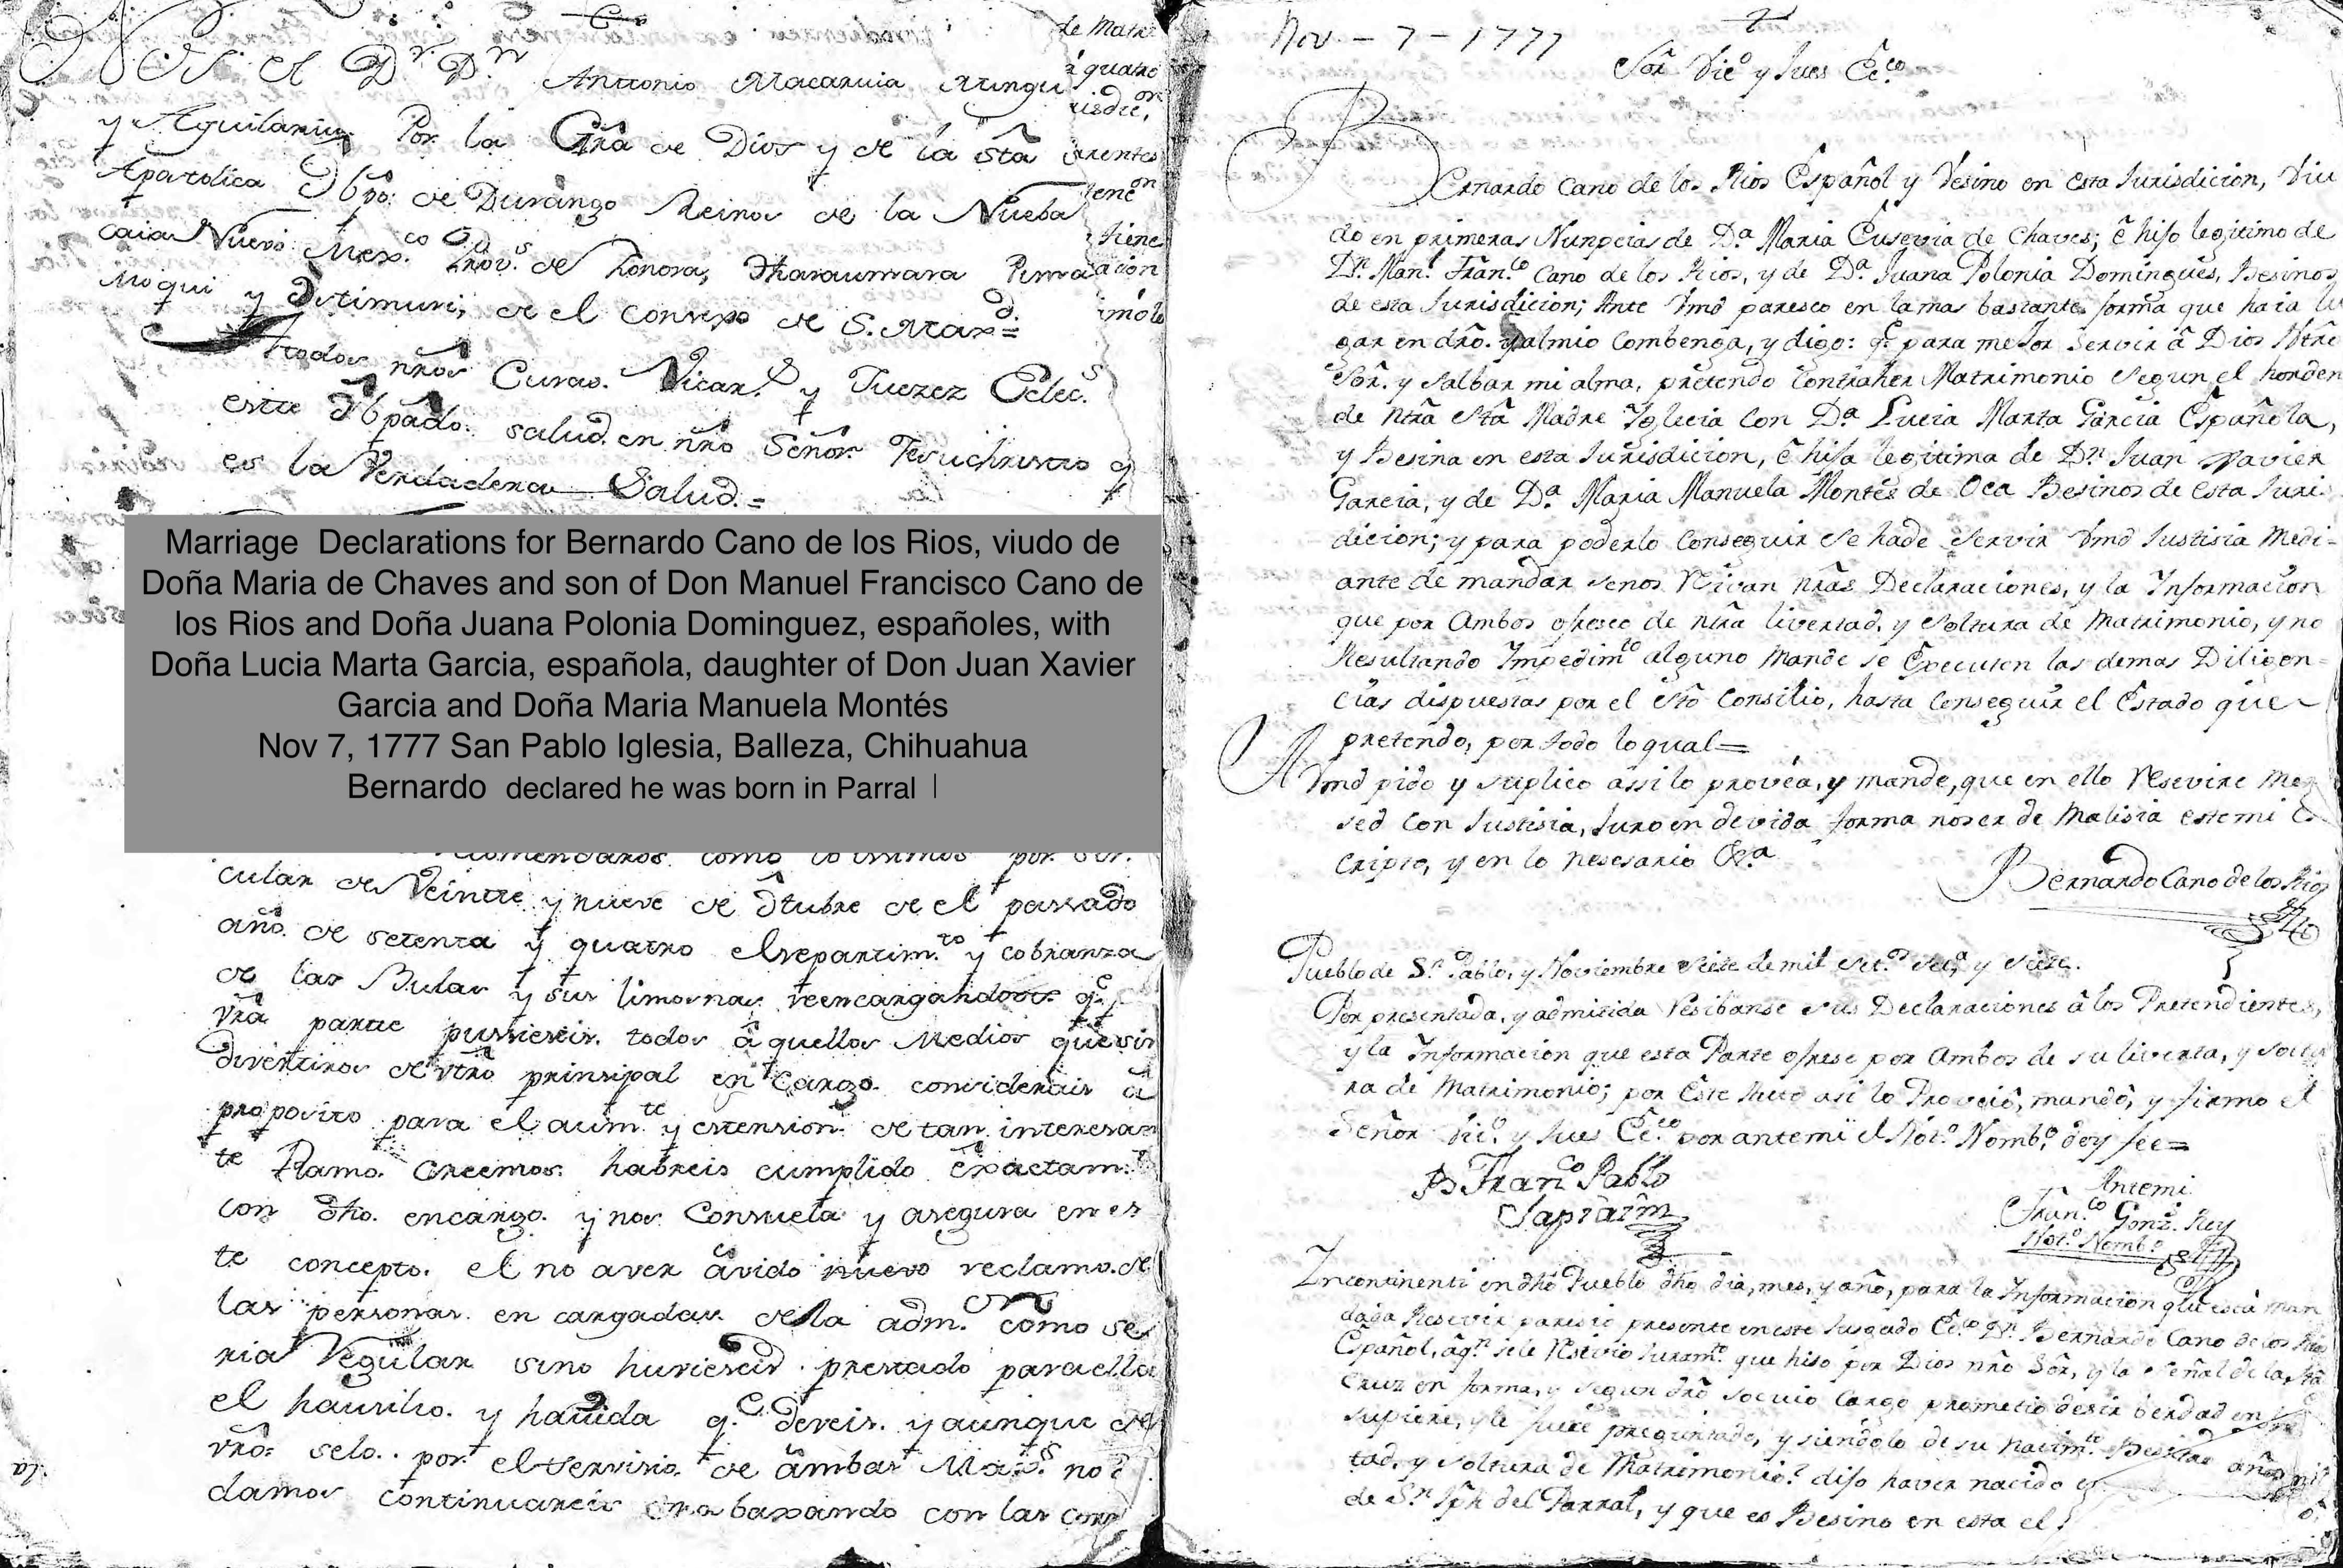 de Matri
Nos el Dr. Dn. Antonio Macaruia Mingu
é quatro
risdicon.
y Aguilaniu Por la Grã de Dios y de la stã
arentes
Apostolica Obpo. de Durango Reinos de la Nueba
tenon
caia Nuevo Mexco. Provs. de Sonora, Tharaumara Pima
tiene
acion
Moqui y Ostimuri; de el Consejo de S. Magd. =
imõlo
A todos nros Curas. Vicars. y Juezez Eclecs.
este Obpãdo. salud. en nrõ Señor Jesuchristo q
es la Verdadera Salud. =
Marriage Declarations for Bernardo Cano de los Rios, viudo de
Doña Maria de Chaves and son of Don Manuel Francisco Cano de
los Rios and Doña Juana Polonia Dominguez, españoles, with
Doña Lucia Marta Garcia, española, daughter of Don Juan Xavier
Garcia and Doña Maria Manuela Montés
Nov 7, 1777 San Pablo Iglesia, Balleza, Chihuahua
Bernardo declared he was born in Parral
comendaros como lo hicimos por Cir.
cular de Veinte y nueve de Otubre de el passado
año. de setenta y quatro el repartimto. y cobranza
de las Bulas y sus limosnas, reencargandoos qe. p
vrã parte pussieseis. todos aquellos Medios que sin
divertiros de vtrõ prinsipal en Cargo. consideráis â
proposito para el aumte. y estension. de tan interesan
te Ramo. Creemos habreis cumplido exactamte.
con dho. encargo. y nos Consuela y asegura en es
te concepto. el no aver âvido nuevo reclamo. de
las personas. en cargadas de la admon. como se
ria Regular sino huvieseis. prestado para ella
el hausilio. y havida qe. deveis. y aunque de
vrõ. selo. por el servisio. de ambas Mags. no
damos continuareis trabaxando con las
Nov - 7 - 1777
Sõr Vico. y Jues Ecco.
Bernardo Cano de los Rios Español y Vesino en esta Jurisdicion, Viu
do en primeras Nunpcias de Da. Maria Eusevia de Chaves; ê hiso legitimo de
Dn. Manl. Franco. Cano de los Rios, y de Da. Juana Polonia Domingues, Besinos
de esta Jurisdicion; Ante Vmd paresco en la mas bastante forma que haia lu
gar en drõ. y al mio Combenga, y digo: qe. para mejor servir â Dios Ntrõ
Sõr. y salbar mi alma, pretendo Contraher Matrimonio segun el horden
de Ntrã Stã Madre Yglecia con Da. Lucia Marta Garcia Española,
y Besina en esta Jurisdicion, ê hisa legitima de Dn. Juan Xavier
Garcia, y de Da. Maria Manuela Montes de Oca Besinos de esta Juris
dicion; y para poderlo Conseguir se hade servir Vmd Justisia Medi-
ante de mandar senos Resivan nrãs Declaraciones, y la Informacion
que por Ambos ofresco de ntrã livertad, y soltura de Matrimonio, y no
Resultando Impedimto. alguno Mande se Executen las demas Diligen=
cias dispuestas por el Stõ Consilio, hasta Conseguir el Estado que
pretendo, por todo lo qual=
A Vmd pido y suplico assi lo provéa, y mande, que en ello Resevire Mer
sed con Justisia, Juro en devida forma no ser de Malisia este mi Es
cripto, y en lo nesesario &a.
Bernardo Cano de los Rios
Pueblo de Sn. Pablo, y Noviembre siete de mil setos. seta. y siete.
Por presentada, y admitida Resibanse sus Declaraciones â los Pretendientes,
y la Informacion que esta Parte ofrese por Ambos de su liverta, y soltu
ra de Matrimonio; por Este Auto asi lo Proveió, mandó, y firmo el
Señor Vico. y Jues Ecco. por ante mi el Noto. Nombo. doy fee=
Br. Franco. Pablo
Antemi
Franco. Gonz. Rey
Noto. Nombo.
Incontinenti en dho Pueblo dho dia, mes, y año, para la Informacion que está man
dada Resevir paresió presente en este Jusgado Ecco. Dn. Bernardo Cano de los Rios
Español, âqn. sele Resivió Juramto. que hiso por Dios nrõ Sõr, y la señal de la Stã
Cruz en forma, y segun drõ socuio Cargo prometió desir berdad en lo
supiere, y le fuere preguntado, y siéndolo de su nacimto.
tad, y soltura de Matrimonio? diso haver nacido
de Sn. Jph del Parral, y que es Besino en esta